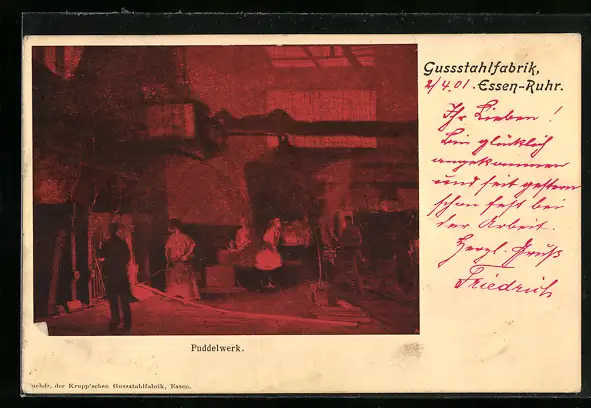 Gussstahlfabrik,
Essen-Ruhr.
2/4.01.
Ihr Lieben!
Bin glücklich
angekommen
und seit gestern
schon fest bei
der Arbeit.
Herzl. Gruß
Friedrich
Puddelwerk.
der Krupp'schen Gussstahlfabrik, Essen.